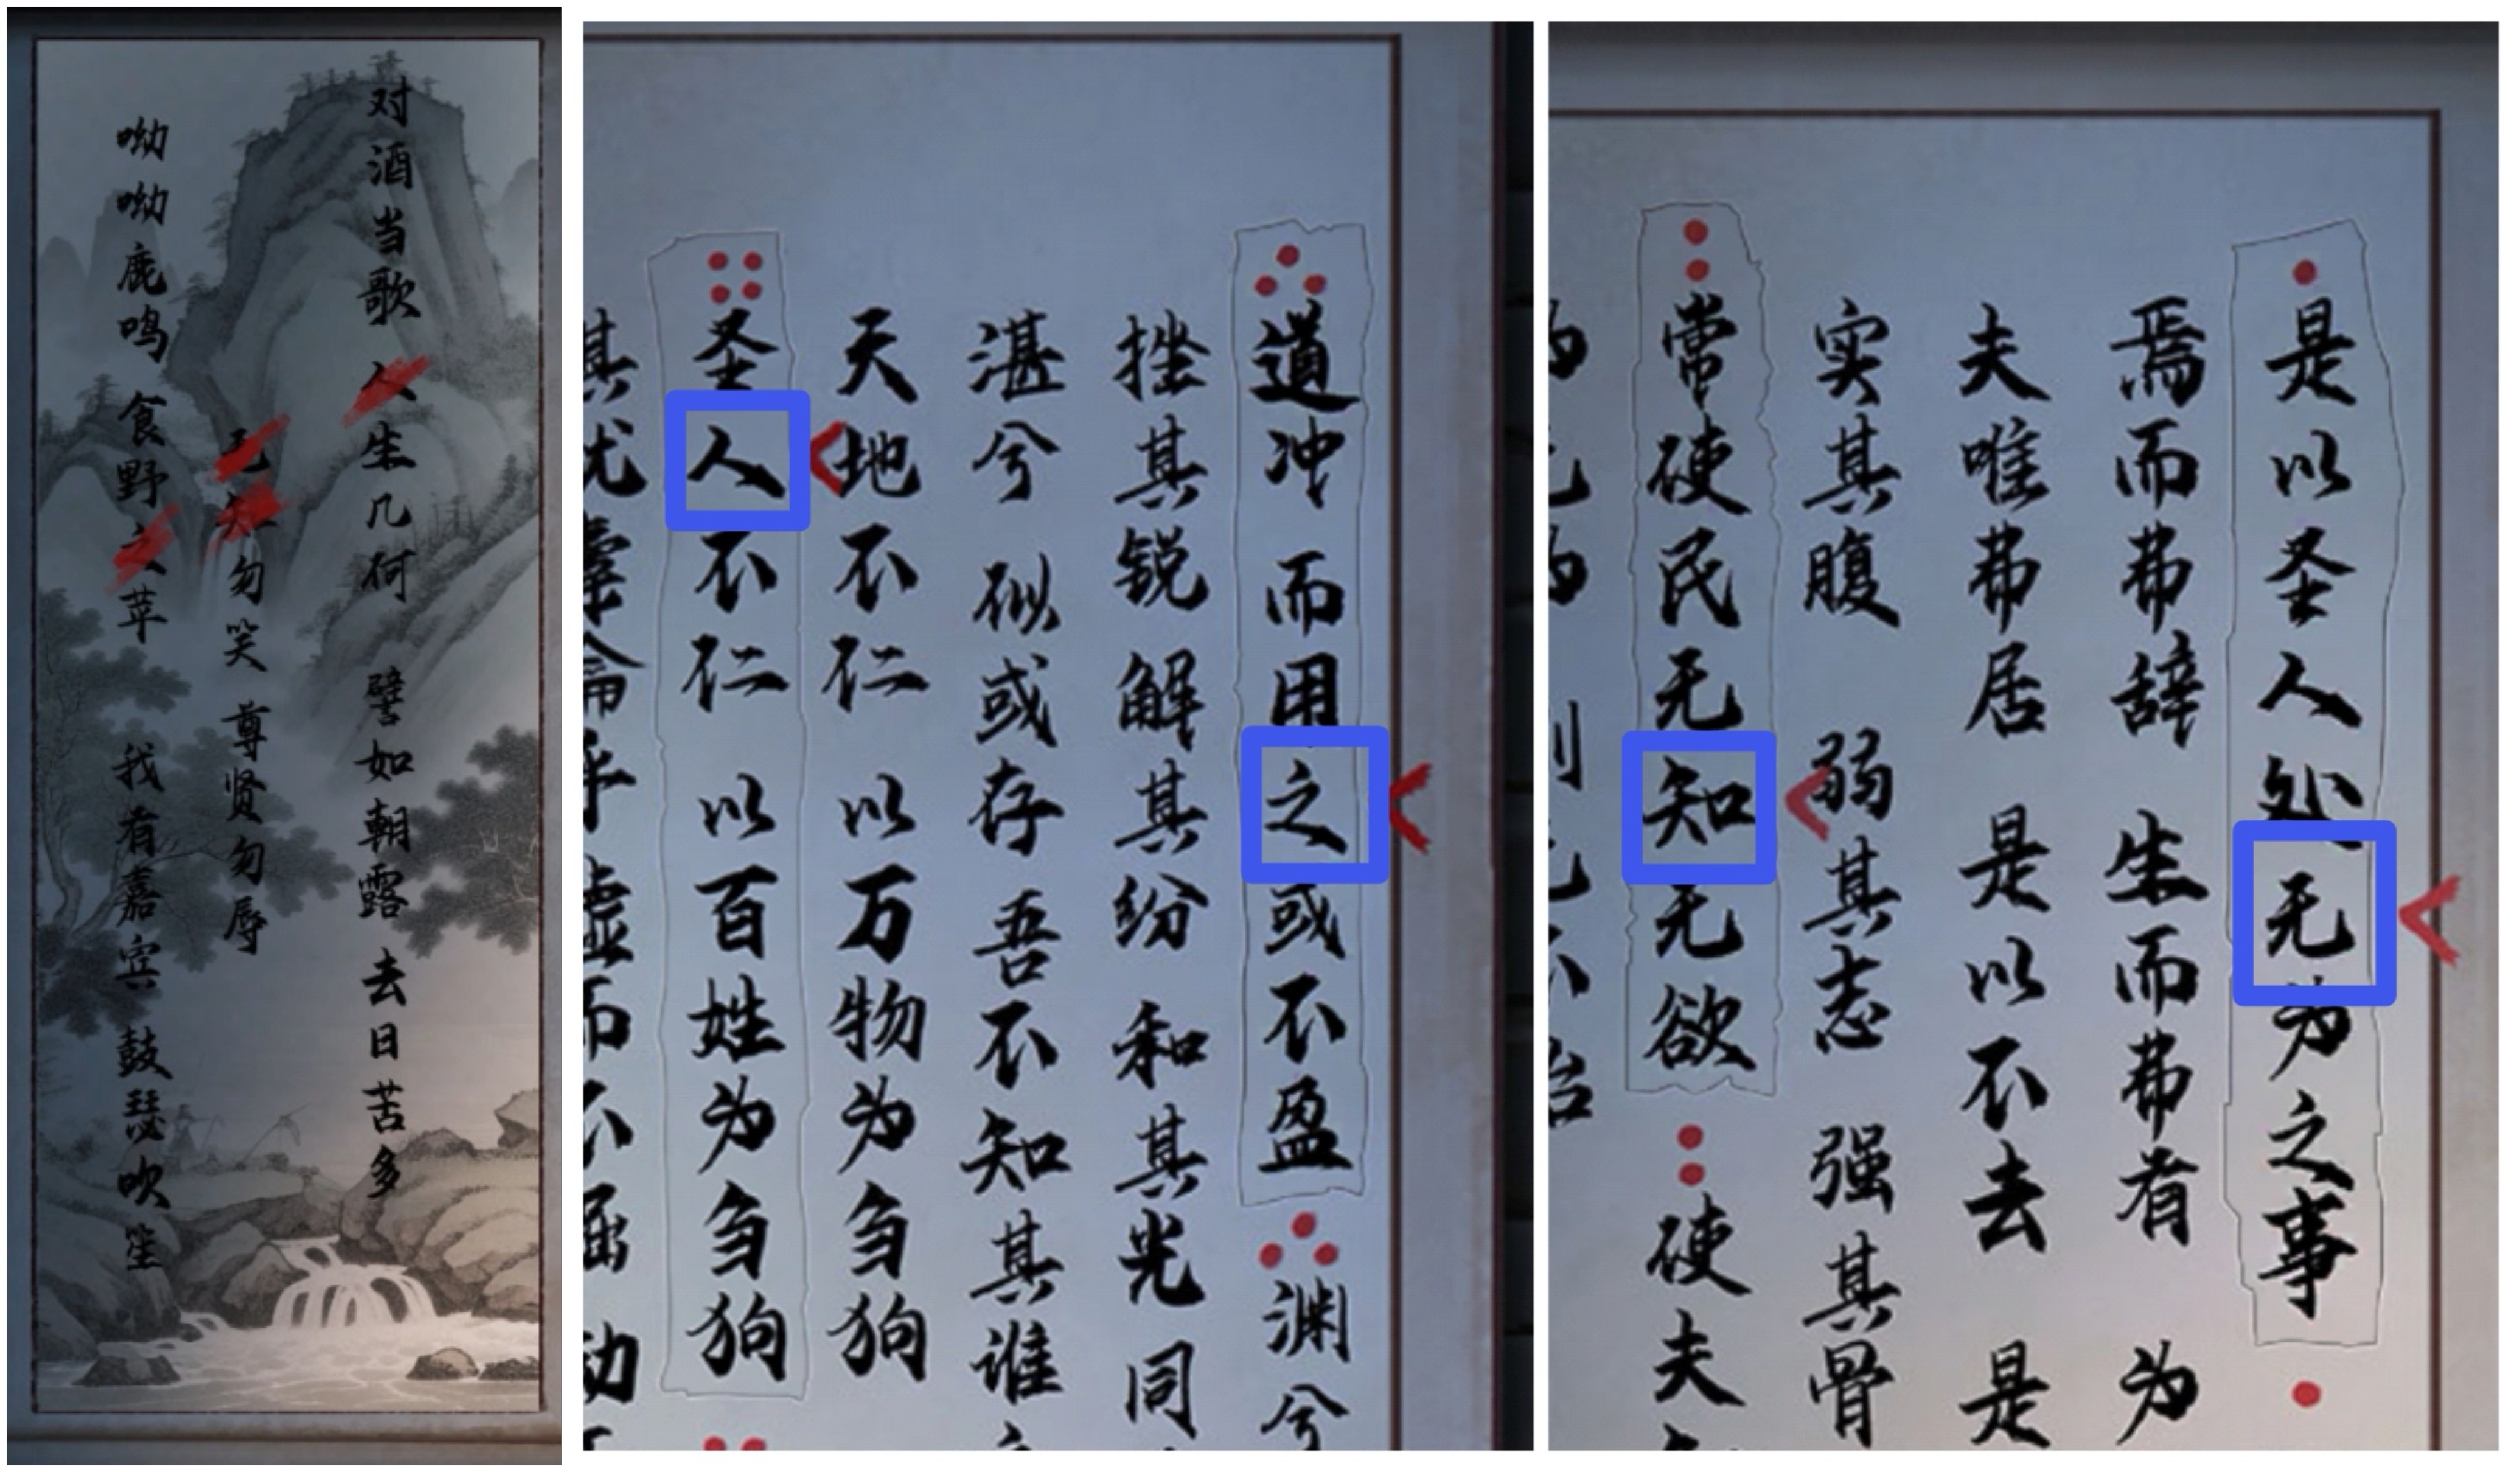 对酒当歌 人生几何 譬如朝露 去日苦多
无知勿笑 尊贤勿辱
呦呦鹿鸣 食野之苹 我有嘉宾 鼓瑟吹笙
道冲 而用之或不盈 渊兮
挫其锐 解其纷 和其光 同
湛兮 似或存 吾不知其谁
天地不仁 以万物为刍狗
圣人不仁 以百姓为刍狗
其犹橐龠乎 虚而不屈 动
是以圣人处无为之事
焉而弗辞 生而弗有 为
夫唯弗居 是以不去 是
实其腹 弱其志 强其骨
常使民无知无欲 使夫
为无为 则无不治